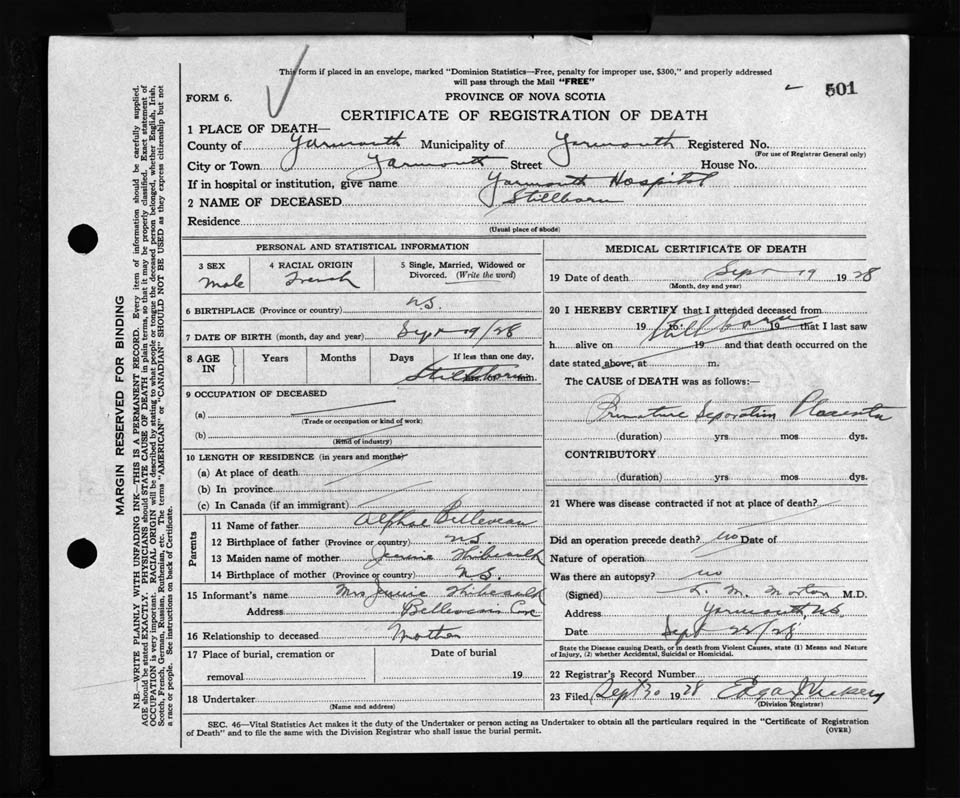 This form if placed in an envelope, marked "Dominion Statistics—Free, penalty for improper use, $300," and properly addressed
will pass through the Mail "FREE"
501
FORM 6.
PROVINCE OF NOVA SCOTIA
CERTIFICATE OF REGISTRATION OF DEATH
1 PLACE OF DEATH—
County of Yarmouth Municipality of Yarmouth Registered No.
(For use of Registrar General only)
City or Town Yarmouth Street House No.
If in hospital or institution, give name Yarmouth Hospital
2 NAME OF DECEASED Stillborn
Residence
(Usual place of abode)
PERSONAL AND STATISTICAL INFORMATION
3 SEX
Male
4 RACIAL ORIGIN
French
5 Single, Married, Widowed or
Divorced. (Write the word)
6 BIRTHPLACE (Province or country) N.S.
7 DATE OF BIRTH (month, day and year) Sept 19/28
8 AGE IN
Years Months Days
If less than one day,
Stillborn hrs. or min.
9 OCCUPATION OF DECEASED
(a)
(Trade or occupation or kind of work)
(b)
(Kind of industry)
10 LENGTH OF RESIDENCE (in years and months)
(a) At place of death
(b) In province
(c) In Canada (if an immigrant)
Parents
11 Name of father Alphae Belleveau
12 Birthplace of father (Province or country) N.S.
13 Maiden name of mother Jennie Thibeault
14 Birthplace of mother (Province or country) N.S.
15 Informant's name Mrs Jennie Thibeault
Address Belleveau's Cove
16 Relationship to deceased Mother
17 Place of burial, cremation or
removal
Date of burial
19
18 Undertaker
(Name and address)
MEDICAL CERTIFICATE OF DEATH
19 Date of death Sept 19 1928
(Month, day and year)
20 I HEREBY CERTIFY that I attended deceased from
19 to Stillborn 19 that I last saw
h alive on 19 and that death occurred on the
date stated above, at m.
The CAUSE of DEATH was as follows:—
Premature Separation Placenta
(duration) yrs mos dys.
CONTRIBUTORY
(duration) yrs mos dys.
21 Where was disease contracted if not at place of death?
Did an operation precede death? no Date of
Nature of operation
Was there an autopsy? no
(Signed) L. M. Morton M.D.
Address Yarmouth, N.S.
Date Sept 22/28
State the Disease causing Death, or in death from Violent Causes, state (1) Means and Nature
of Injury, (2) whether Accidental, Suicidal or Homicidal.
22 Registrar's Record Number
23 Filed Sept 30 1928 Edgar J Vickery
(Division Registrar)
SEC. 46—Vital Statistics Act makes it the duty of the Undertaker or person acting as Undertaker to obtain all the particulars required in the "Certificate of Registration
of Death" and to file the same with the Division Registrar who shall issue the burial permit.
(OVER)
MARGIN RESERVED FOR BINDING
N.B.—WRITE PLAINLY WITH UNFADING INK—THIS IS A PERMANENT RECORD. Every item of information should be carefully supplied.
AGE should be stated EXACTLY. PHYSICIANS should STATE CAUSE OF DEATH in plain terms, so that it may be properly classified. Exact statement of
OCCUPATION is very important. RACIAL ORIGIN will be described by stating to what people or tongue the deceased person belonged, whether English, Irish,
Scotch, French, German, Russian, Ruthenian, etc. The terms "AMERICAN" or "CANADIAN" SHOULD NOT BE USED as they express citizenship but not
a race or people. See instructions on back of Certificate.